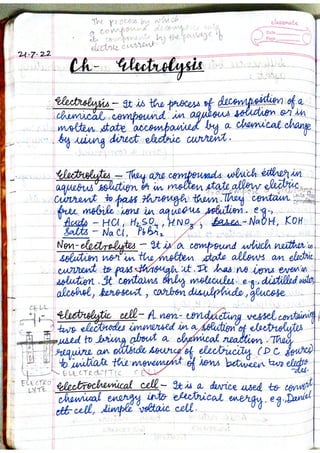 The process by which
a compound decomposes into
its components by the passage of
electric current
classmate
Date
Page
21.7.22
Ch- Electrolysis
Electrolysis - It is the process of decomposition of a
chemical compound in aqueous solution or in
molten state accompanied by a chemical change
by using direct electric current.
Electrolytes - They are compounds which either in
aqueous solution or in molten state allow electric
current to pass through them. They contain
free mobile ions in aqueous solution. e.g.,
Acids - HCl, H2SO4, HNO3, Bases - NaOH, KOH
Salts - NaCl, PbBr2
Non-electrolytes - It is a compound which neither in
solution nor in the molten state allows an electric
current to pass through it. It has no ions even in
solution. It contains only molecules e.g, distilled water,
alcohol, kerosene, carbon disulphide, glucose
Electrolytic cell - A non-conducting vessel containing
two electrodes immersed in a solution of electrolytes
used to bring about a chemical reaction. They
require an outside source of electricity (DC source)
to initiate the movement of ions between two electrodes.
CELL
ELECTROLYTIC CELL
ELECTROLYTE
Electrochemical cell - It is a device used to convert
chemical energy into electrical energy. e.g, Daniel
cell, simple voltaic cell.